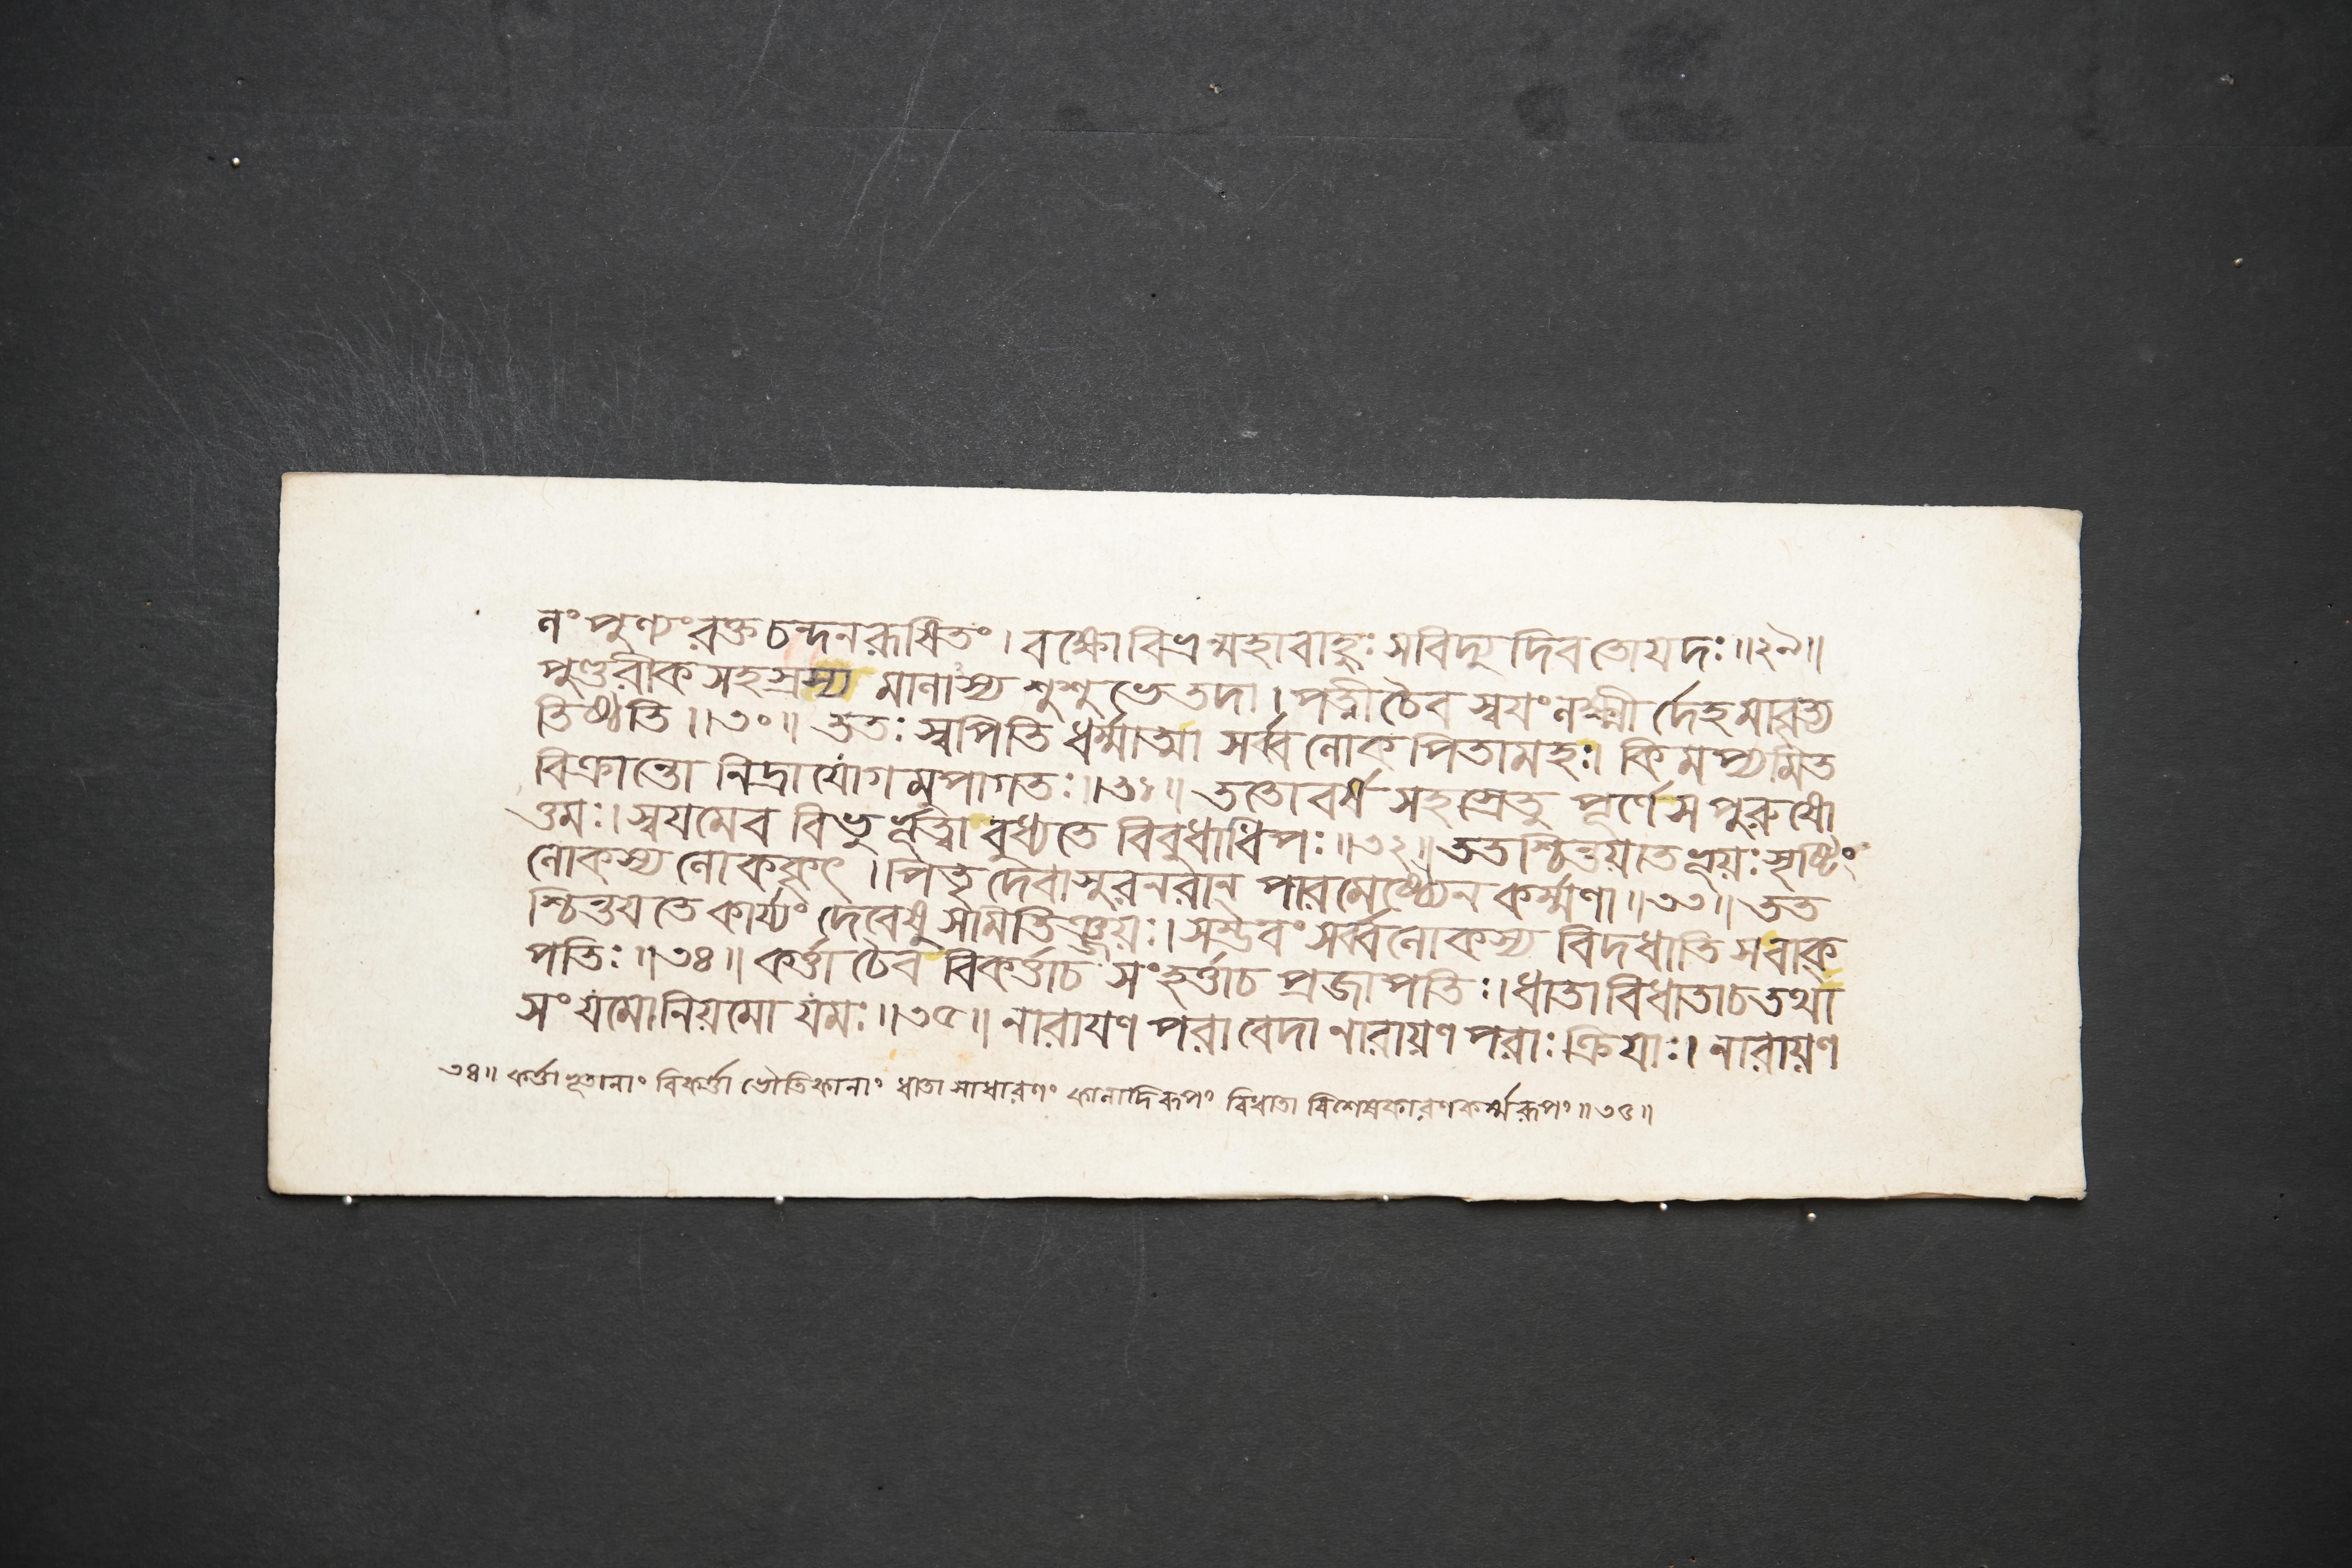 নং পুণ্যং রক্ত চন্দনরূষিতং । বক্ষো বিভ্রন্মহাবাহুঃ সবিদ্যুদিব তোযদঃ ॥২৯॥
পুণ্ডরীক সহস্রস্য মানাস্য শুশুভে তদা । পত্নী চৈব স্বযং লক্ষ্মী র্দেহমাবৃত্য
তিষ্ঠতি ॥৩০॥ ততঃ স্বপিতি ধর্ম্মাত্মা সর্ব্বলোকপিতামহঃ। কিমপ্যমিত
বিক্রান্তো নিদ্রাযোগমুপাগতঃ ॥৩১॥ ততো বর্ষ সহস্রেতু পূর্ণে স পুরুষো
ত্তমঃ । স্বযমেব বিভুর্ভূত্বা বুধ্যতে বিবুধাধিপঃ ॥৩২॥ ততশ্চিন্তয়তে ভূয়ঃ সৃষ্টিং
লোকস্য লোককৃৎ । পিতৃ দেবাসুরনরান্ পারমেষ্ঠ্যেন কর্ম্মণা ॥৩৩॥ তত
শ্চিন্তযতে কার্য্যং দেবেষু সমিতিঞ্জয়ঃ । সম্ভবং সর্ব্বলোকস্য বিদধাতি স বাক্
পতিঃ ॥৩৪॥ কর্ত্তা চৈব বিকর্ত্তাচ সংহর্ত্তাচ প্রজাপতিঃ । ধাতা বিধাতাচ তথা
সংযমো নিয়মো যমঃ ॥৩৫॥ নারাযণ পরা বেদা নারায়ণ পরাঃ ক্রিযাঃ । নারায়ণ
৩৪॥ কর্ত্তা ভূতানাং বিকর্ত্তা ভৌতিকানাং ধাতা সাধারণং কালাদিরূপং বিধাতা বিশেষকারণকর্ম্মরূপং ॥৩৫॥